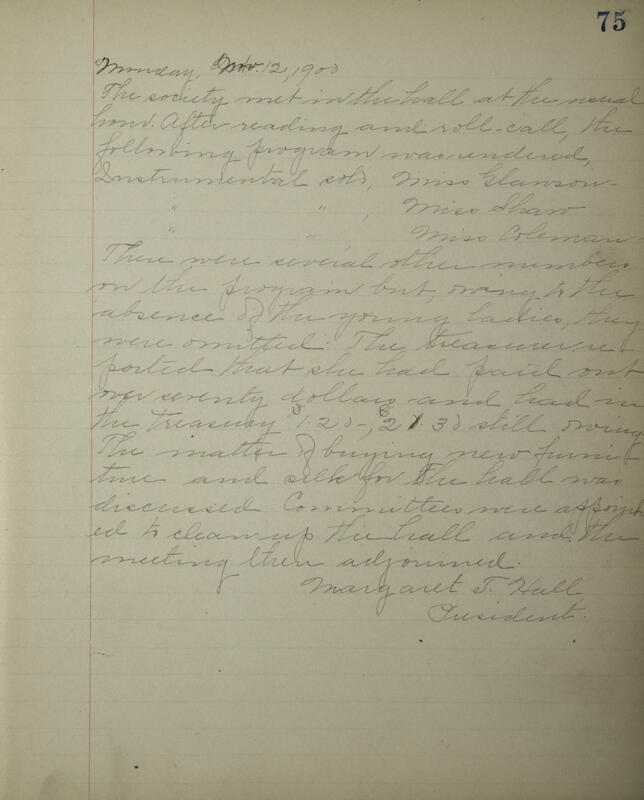 75
Monday, Nov. 12, 1900
The society met in the hall at the usual
hour. After reading and roll-call, the
following program was rendered,
Instrumental solo, Miss Glawson-
" " , Miss Shaw
" " Miss Coleman
There were several other numbers
on the program but, owing to the
absence of the young ladies, they
were omitted. The treasurer re-
ported that she had paid out
over seventy dollars and had in
the treasury $1.20-, still owing.
The matter of buying new furni-
ture and silk for the hall was
discussed. Committees were appoint-
ed to clean up the hall and the
meeting then adjourned.
Margaret T. Hall,
President.